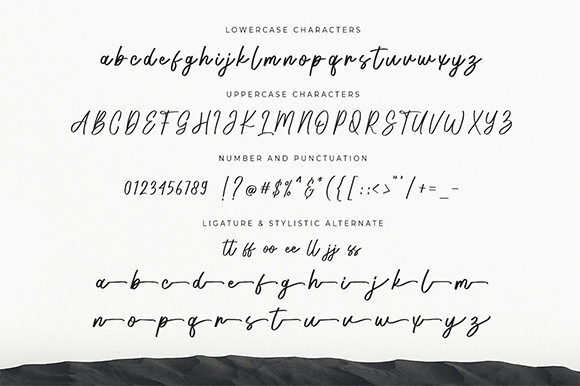 LOWERCASE CHARACTERS
abcdefghijklmnopqrstuvwxyz
UPPERCASE CHARACTERS
ABCDEFGHIJKLMNOPQRSTUVWXYZ
NUMBER AND PUNCTUATION
0123456789 !?@#$%^&*({[::<>"'/+=_-
LIGATURE & STYLISTIC ALTERNATE
tt ff oo ee ll jj ss
a b c d e f g h i j k l m
n o p q r s t u v w x y z